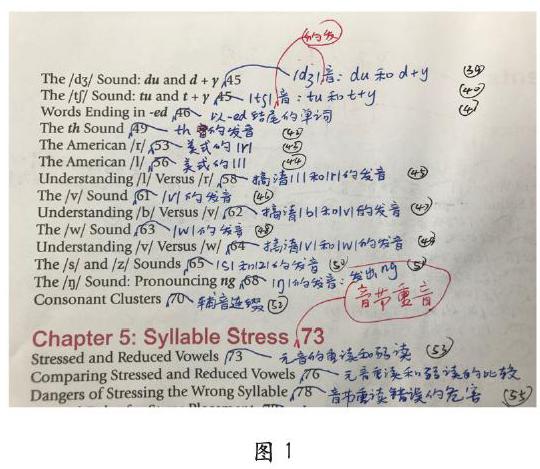 的发
The /dʒ/ Sound: du and d + y 45 /dʒ/音: du 和 d+y (39)
The /tʃ/ Sound: tu and t + y 45 /tʃ/音: tu 和 t+y (40)
Words Ending in -ed 46 以-ed 结尾的单词 (41)
The th Sound 49 th 的发音 (42)
The American /r/ 53 美式的 /r/ (43)
The American /l/ 56 美式的 /l/ (44)
Understanding /l/ Versus /r/ 58 搞清/l/和/r/的发音 (45)
The /v/ Sound 61 /v/的发音 (46)
Understanding /b/ Versus /v/ 62 搞清/b/和/v/的发音 (47)
The /w/ Sound 63 /w/的发音 (48)
Understanding /v/ Versus /w/ 64 搞清/v/和/w/的发音 (49)
The /s/ and /z/ Sounds 65 /s/和/z/的发音 (50)
The /ŋ/ Sound: Pronouncing ng 68 /ŋ/的发音: 发出ng (51)
Consonant Clusters 70 辅音连缀 (52)
音节重音
Chapter 5: Syllable Stress 73
Stressed and Reduced Vowels 73 元音的重读和弱读 (53)
Comparing Stressed and Reduced Vowels 76 元音重读和弱读的比较
Dangers of Stressing the Wrong Syllable 78 音节重读错误的危害 (55)
图 1